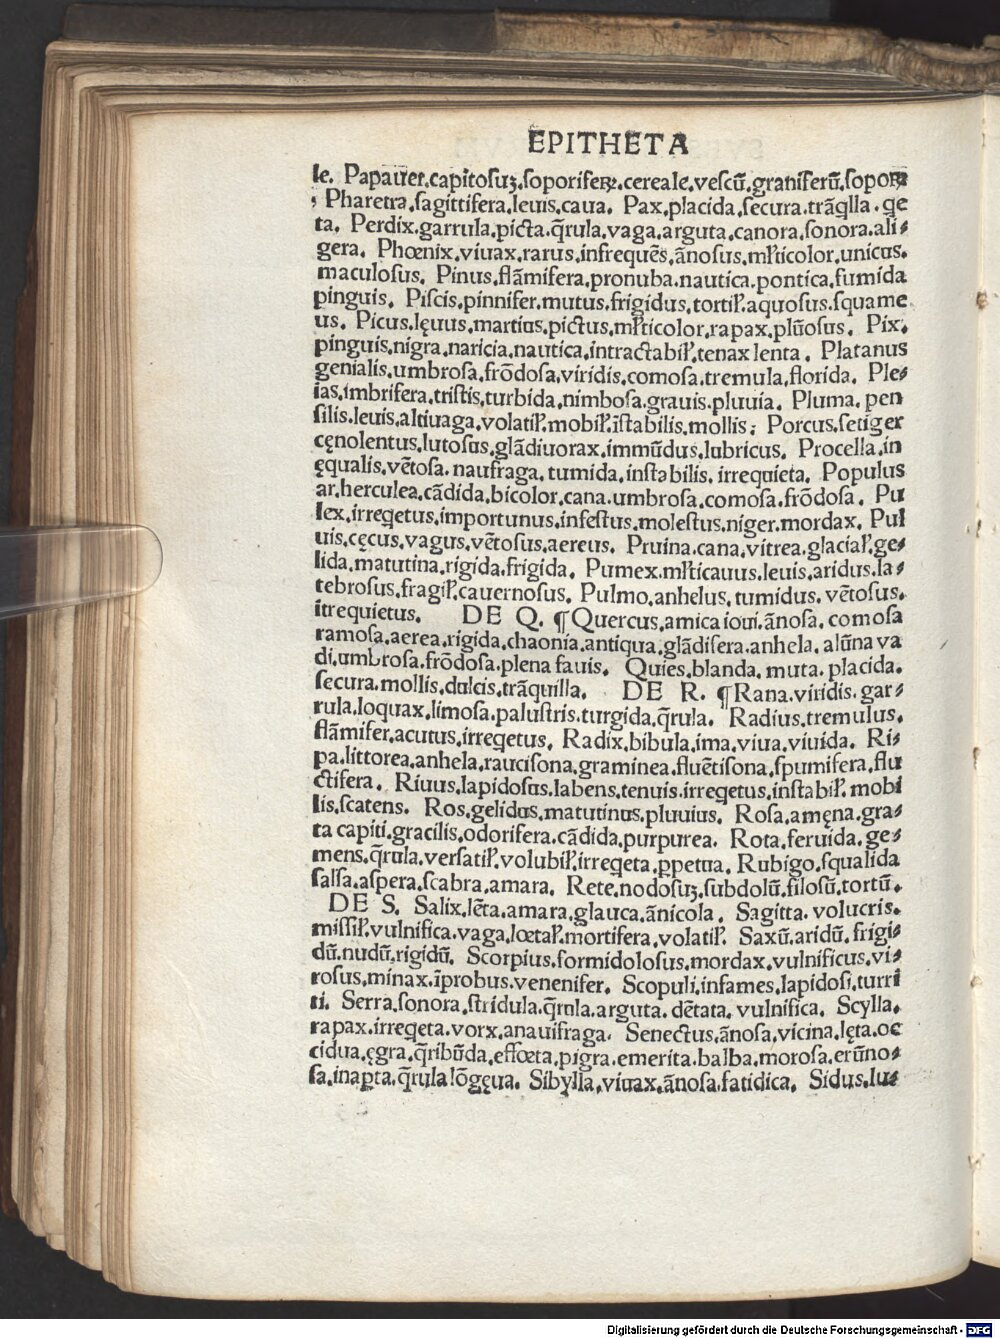 EPITHETA
le. Papauer.capitosuʒ.soporiferꝝ.cereale.vescū.graniferū.soporꝝ
; Pharetra.sagittifera.leuis.caua. Pax.placida.secura.trāqlla.qe
ta. Perdix.garrula.picta.q̄rula.vaga.arguta.canora.sonora.ali⸗
gera. Phœnix.viuax.rarus.infrequēs.ānosus.mƚticolor.unicus.
maculosus. Pinus.flāmifera.pronuba.nautica.pontica.fumida
pinguis. Piscis.pinnifer.mutus.frigidus.tortiƚ.aquosus.squame
us. Picus.lęuus.martius.pictus.mƚticolor.rapax.plūosus. Pix.
pinguis.nigra.naricia.nautica.intractabiƚ.tenax lenta. Platanus
genialis.umbrosa.frōdosa.viridis.comosa.tremula.florida. Ple⸗
ias.imbrifera.tristis.turbida.nimbosa.grauis.pluuia. Pluma.pen
silis.leuis.altiuaga.volatiƚ.mobiƚ.īstabilis.mollis; Porcus.setiger
cęnolentus.lutosus.glādiuorax.immūdus.lubricus. Procella.in
ęqualis.vētosa.naufraga.tumida.instabilis.irrequieta. Populus
ar.herculea.cādida.bicolor.cana.umbrosa.comosa.frōdosa. Pu
lex.irreqetus.importunus.infestus.molestus.niger.mordax. Pul
uis.cęcus.vagus.vētosus.aereus. Pruina.cana.vitrea.glaciaƚ.ge⸗
lida.matutina.rigida.frigida. Pumex.mƚticauus.leuis.aridus.la⸗
tebrosus.fragiƚ.cauernosus. Pulmo.anhelus.tumidus.vētosus.
irrequietus. DE Q. ¶Quercus.amica ioui.ānosa.comosa
ramosa.aerea.rigida.chaonia.antiqua.glādifera.anhela.alūna va
di.umbrosa.frōdosa.plena fauis. Quies.blanda.muta.placida.
secura.mollis.dulcis.trāquilla. DE R. ¶Rana.viridis.gar⸗
rula.loquax.limosa.palustris.turgida.q̄rula. Radius.tremulus.
flāmifer.acutus.irreqetus. Radix.bibula.ima.viua.viuida. Ri⸗
pa.littorea.anhela.raucisona.graminea.fluētisona.spumifera.flu
ctifera. Riuus.lapidosus.labens.tenuis.irreqetus.instabiƚ.mobi
lis.scatens. Ros.gelidus.matutinus.pluuius. Rosa.amęna.gra⸗
ta capiti.gracilis.odorifera.cādida.purpurea. Rota.feruida.ge⸗
mens.q̄rula.versatiƚ.volubiƚ.irreqeta.ꝑpetua. Rubigo.squalida
salsa.aspera.scabra.amara. Rete.nodosuʒ.subdolū.filosū.tortū.
DE S. Salix.lēta.amara.glauca.ānicola. Sagitta.volucris.
missiƚ.vulnifica.vaga.lœtaƚ.mortifera.volatiƚ. Saxū.aridū.frigi⸗
dū.nudū.rigidū. Scorpius.formidolosus.mordax.vulnificus.vi⸗
rosus.minax.īprobus.venenifer. Scopuli.infames.lapidosi.turri
ti. Serra.sonora.stridula.q̄rula.arguta.dētata.vulnifica. Scylla.
rapax.irreqeta.vorx.anauifraga. Senectus.ānosa.vicina.lęta.oc
cidua.ęgra.q̄ribūda.effœta.pigra.emerita.balba.morosa.erūno⸗
sa.inapta.q̄rula lōgęua. Sibylla.viuax.ānosa.fatidica. Sidus.lu⸗
Digitalisierung gefördert durch die Deutsche Forschungsgemeinschaft - DFG